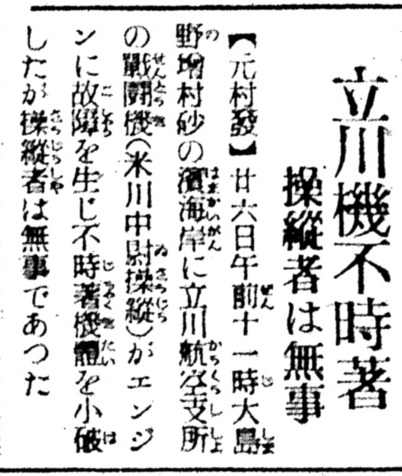 立川機不時著
操縱者は無事
【元村發】廿六日午前十一時大島
野增村砂の濱海岸に立川航空支所
の戰鬪機(米川中尉操縱)がエンジ
ンに故障を生じ不時著機體を小破
したが操縱者は無事であつた